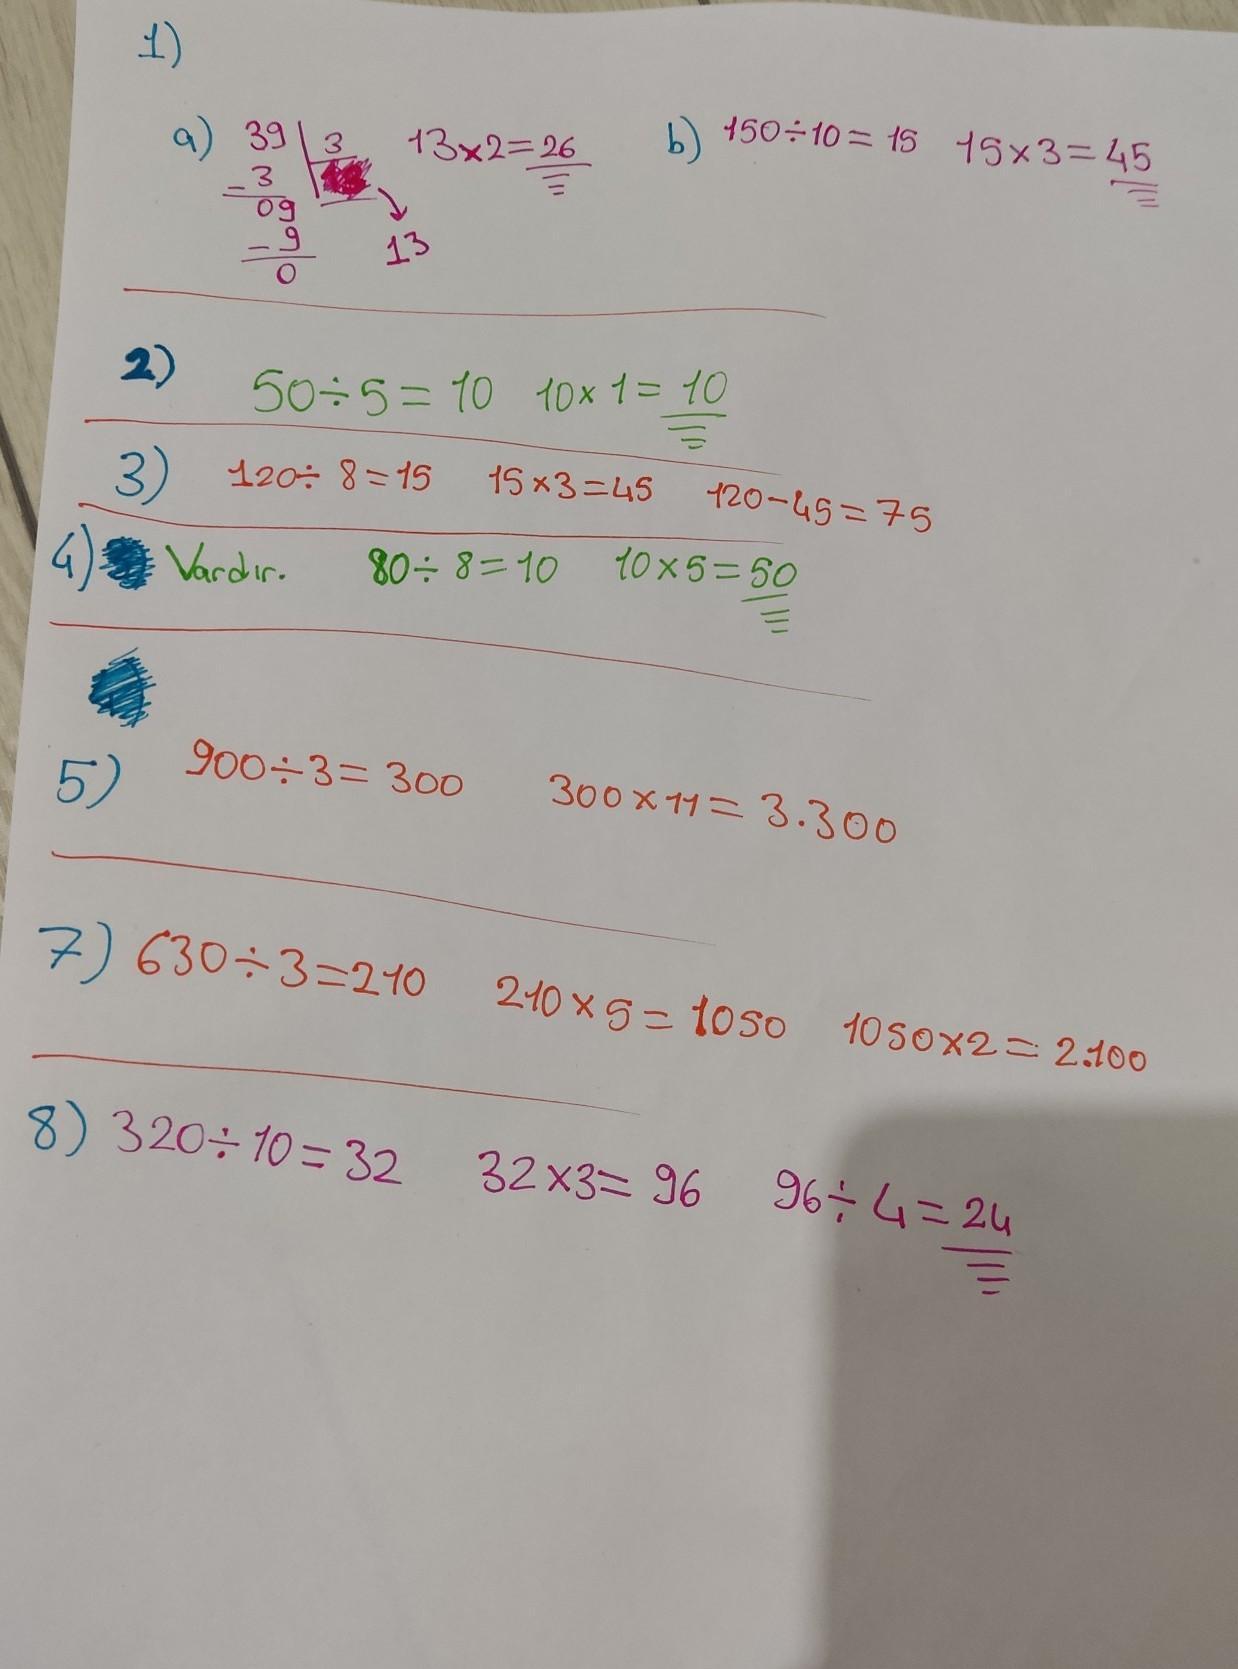 1)
a) 39 3 13x2=26 b) 150÷10=15 15x3=45
-3
09 13
-9
0
2) 50÷5=10 10x1=10
3) 120÷8=15 15x3=45 120-45=75
4) Vardır. 80÷8=10 10x5=50
5) 900÷3=300 300x11=3.300
7) 630÷3=210 210x5=1050 1050x2=2.100
8) 320÷10=32 32x3=96 96÷4=24